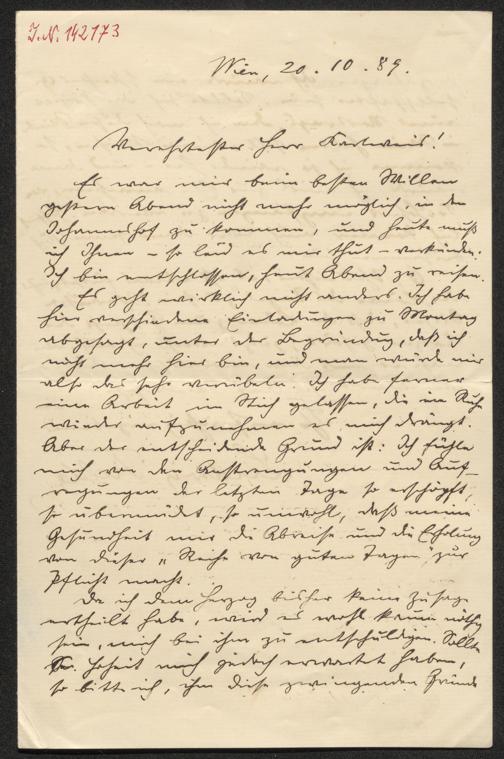 J.N. 142173
Wien, 20. 10. 89.
Verehrtester Herr Karlweis!
Es war mir beim besten Willen
gestern Abend nicht mehr möglich, in den
Johannshof zu kommen, und heute muß
ich Ihnen – so leid es mir thut – verkünden:
Ich bin entschlossen, heut Abend zu reisen.
Es geht wirklich nicht anders. Ich habe
hier verschiedene Einladungen zu Montag
abgesagt, unter der Begründung, daß ich
nicht mehr hier bin, und man würde mir
also das sehr verübeln. Ich habe ferner
eine Arbeit im Stich gelassen, die in Ruhe
wieder aufzunehmen es mich drängt.
Aber der entscheidende Grund ist: Ich fühle
mich von den Anstrengungen und Auf-
regungen der letzten Tage so erschöpft,
so übermüdet, so unwohl, daß meine
Gesundheit mir die Abreise und die Erholung
von dieser „Reihe von guten Tagen" zur
Pflicht macht.
Da ich dem Herzog bisher keine Zusage
ertheilt habe, wird es wohl kaum nöthig
sein, mich bei ihm zu entschuldigen. Sollte
Se. Hoheit mich jedoch erwartet haben,
so bitte ich, ihm diese zwingenden Gründe